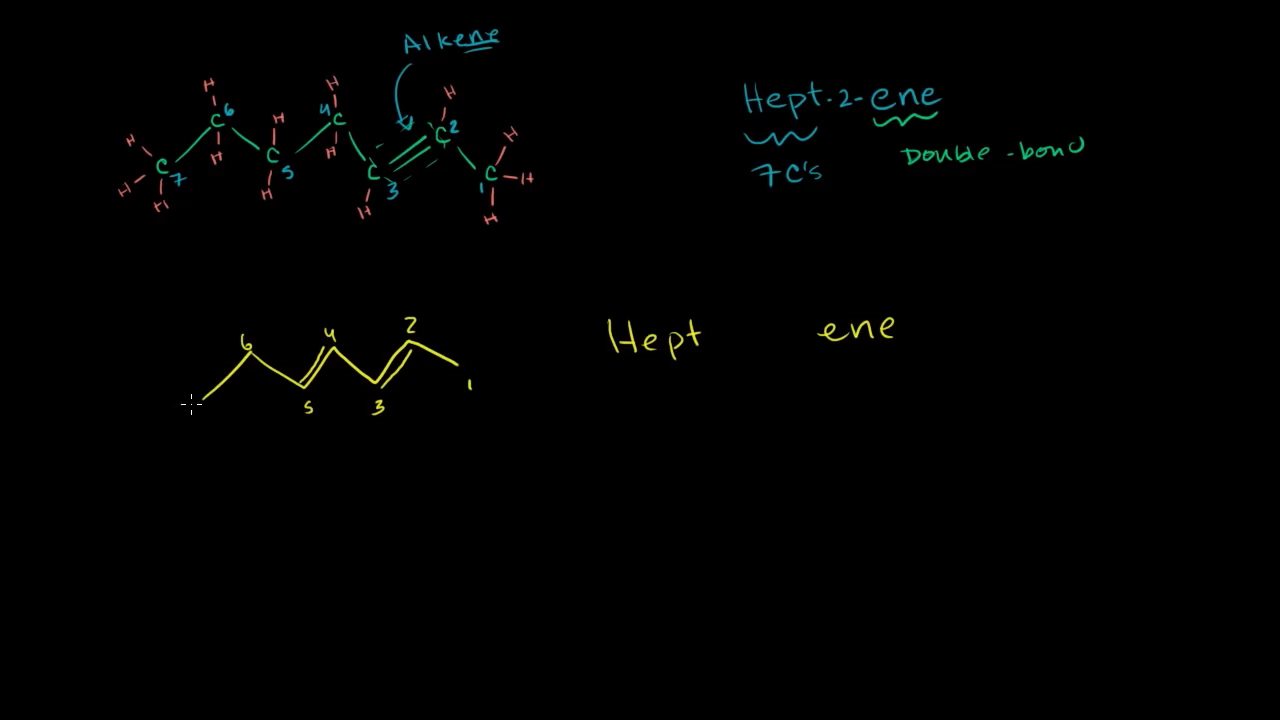 Alkene
H H H
C 6 4 C C 2
H H
H C 7 H C 5 H C 3 1 C H
H H H H H
Hept-2-ene
7 C's
Double-bond
6 4 2
5 3 1
Hept ene